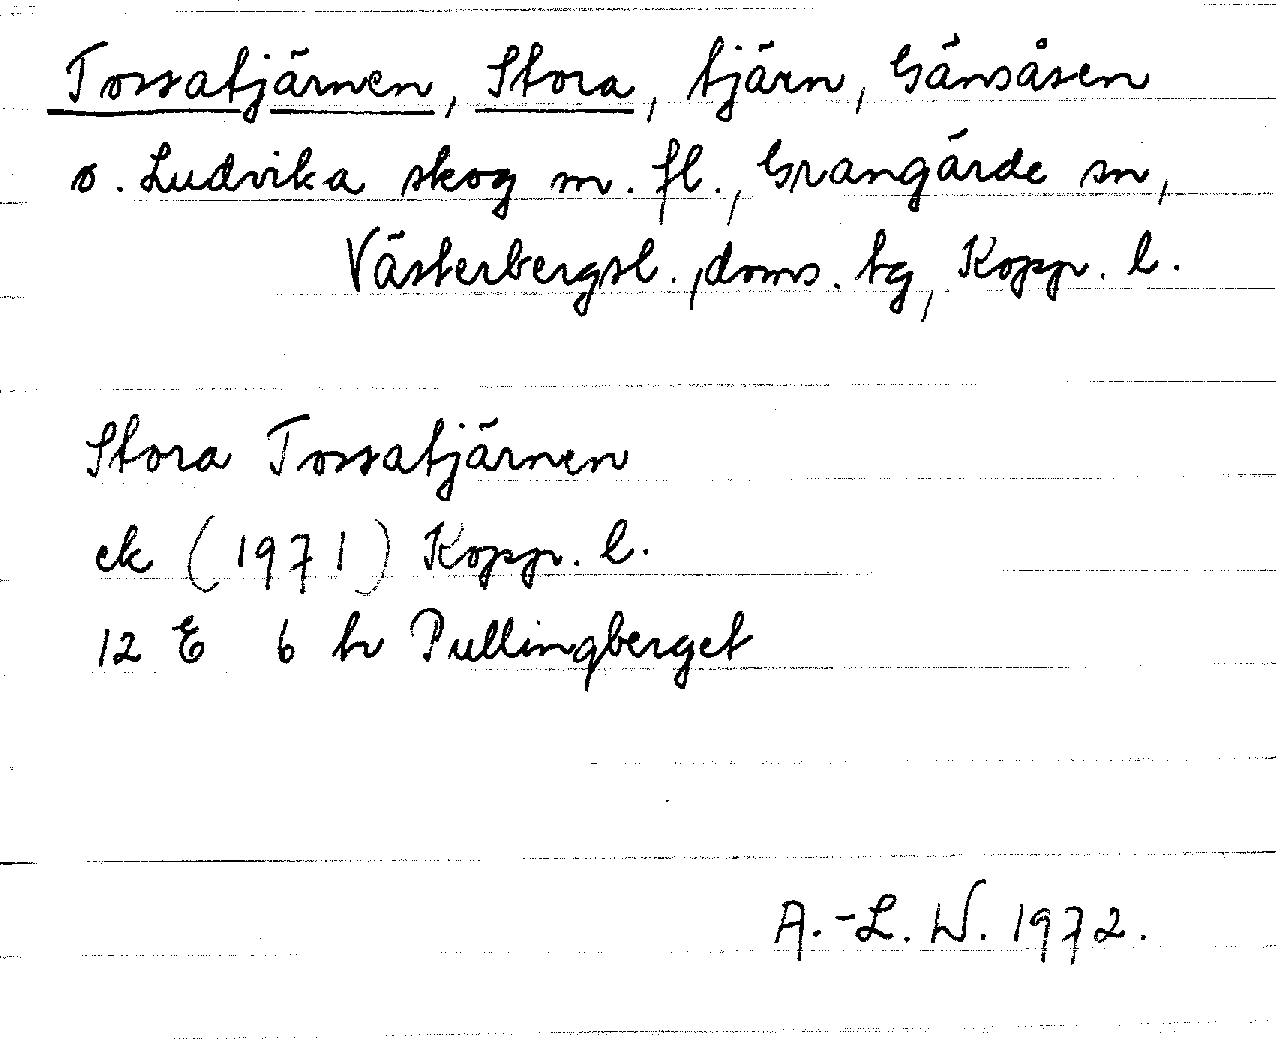 Tossatjärnen, Stora, tjärn, Gänsåsen
o. Ludvika skog m. fl., Grangärde sn,
Västerbergsl. doms. tg, Kopp. l.
Stora Tossatjärnen
ek (1971) Kopp. l.
12 E 6 h Pullingberget
A.-L. W. 1972.